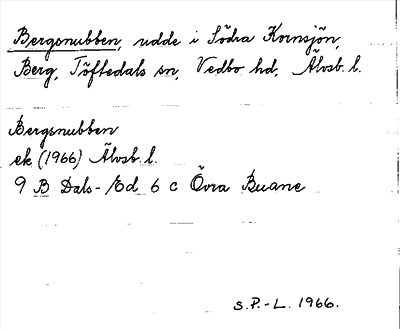 Bergsnubben, udde i Södra Kornsjön,
Berg, Töftedals sn, Vedbo hd, Älvsb. l.
Bergsnubben
ek (1966) Älvsb. l.
9 B Dals-Ed 6 c Övra Buane
S.P.-L. 1966.